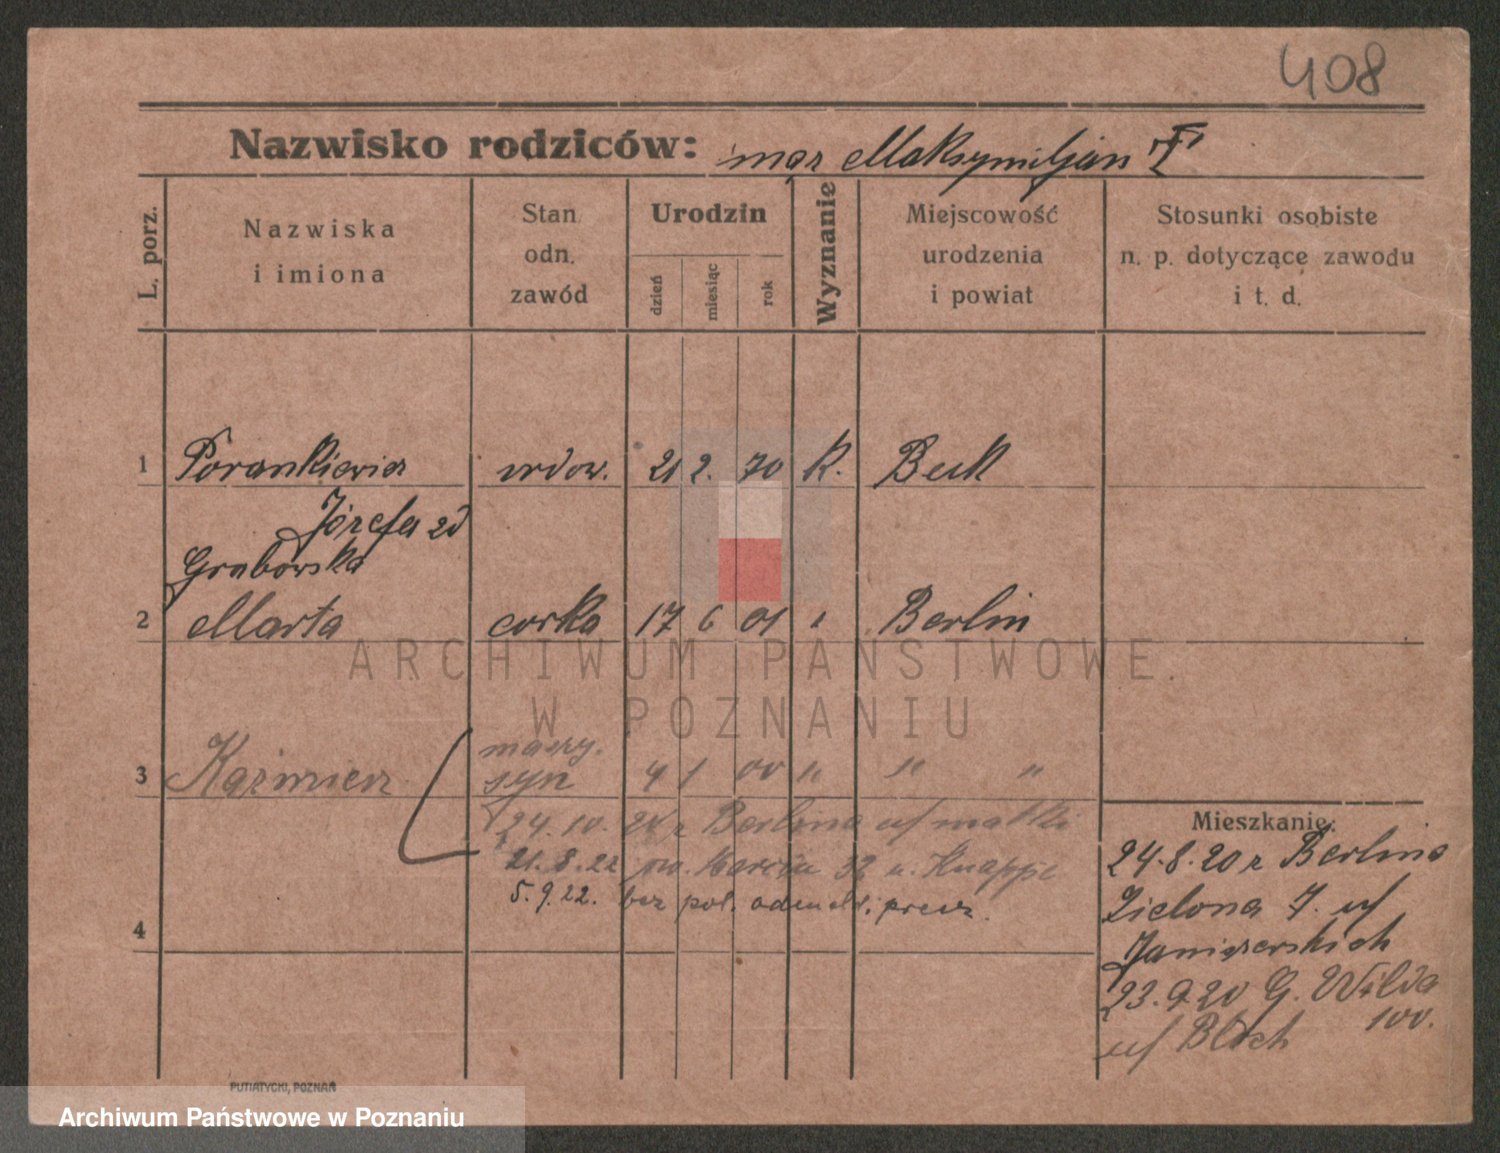 408
Nazwisko rodziców: mąż Maksymiljan
L. porz.
Nazwiska
i imiona
Stan
odn.
zawód
Urodzin
dzień
miesiąc
rok
Wyznanie
Miejscowość
urodzenia
i powiat
Stosunki osobiste
n. p. dotyczące zawodu
i t. d.
1 Porankiewicz wdow. 21 2. 70 K. Buk
Józefa zd
Grabowska
2 Marta corka 17 6 01 Berlin
ARCHIWUM PAŃSTWOWE
W POZNANIU
3 Kaźmierz syn 4 1 00 " " "
24.10. 20 z Berlina u/ matki
21.8.22 Marcin 32 u. Knappe
5.9.22. bez pol. odmeld. precz.
4
Mieszkanie:
24.8.20 z Berlina
Zielona 7. u/
Janiszerskich
23.9.20 G. Wilda
100.
u/ Bloch
PUTIATYCKI, POZNAŃ
Archiwum Państwowe w Poznaniu